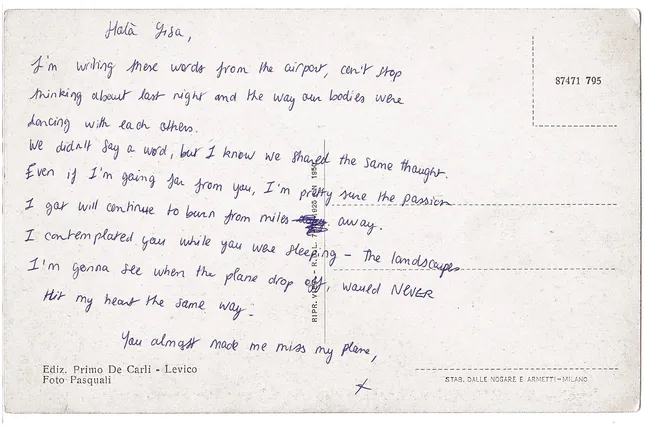 I'm writing these words from the airport, can't stop
thinking about last night and the way our bodies were
dancing with each others.
We didn't say a word, but I know we shared the same thought.
Even if I'm going far from you, I'm pretty sure the passion
I got will continue to burn from miles away.
I contemplated you while you were sleeping - The landscapes
I'm gonna see when the plane drop off, would NEVER
Hit my heart the same way.
You almost made me miss my plane,
x
87471 795
Ediz. Primo De Carli - Levico
Foto Pasquali
STAB. DALLE NOGARE E ARMETTI-MILANO